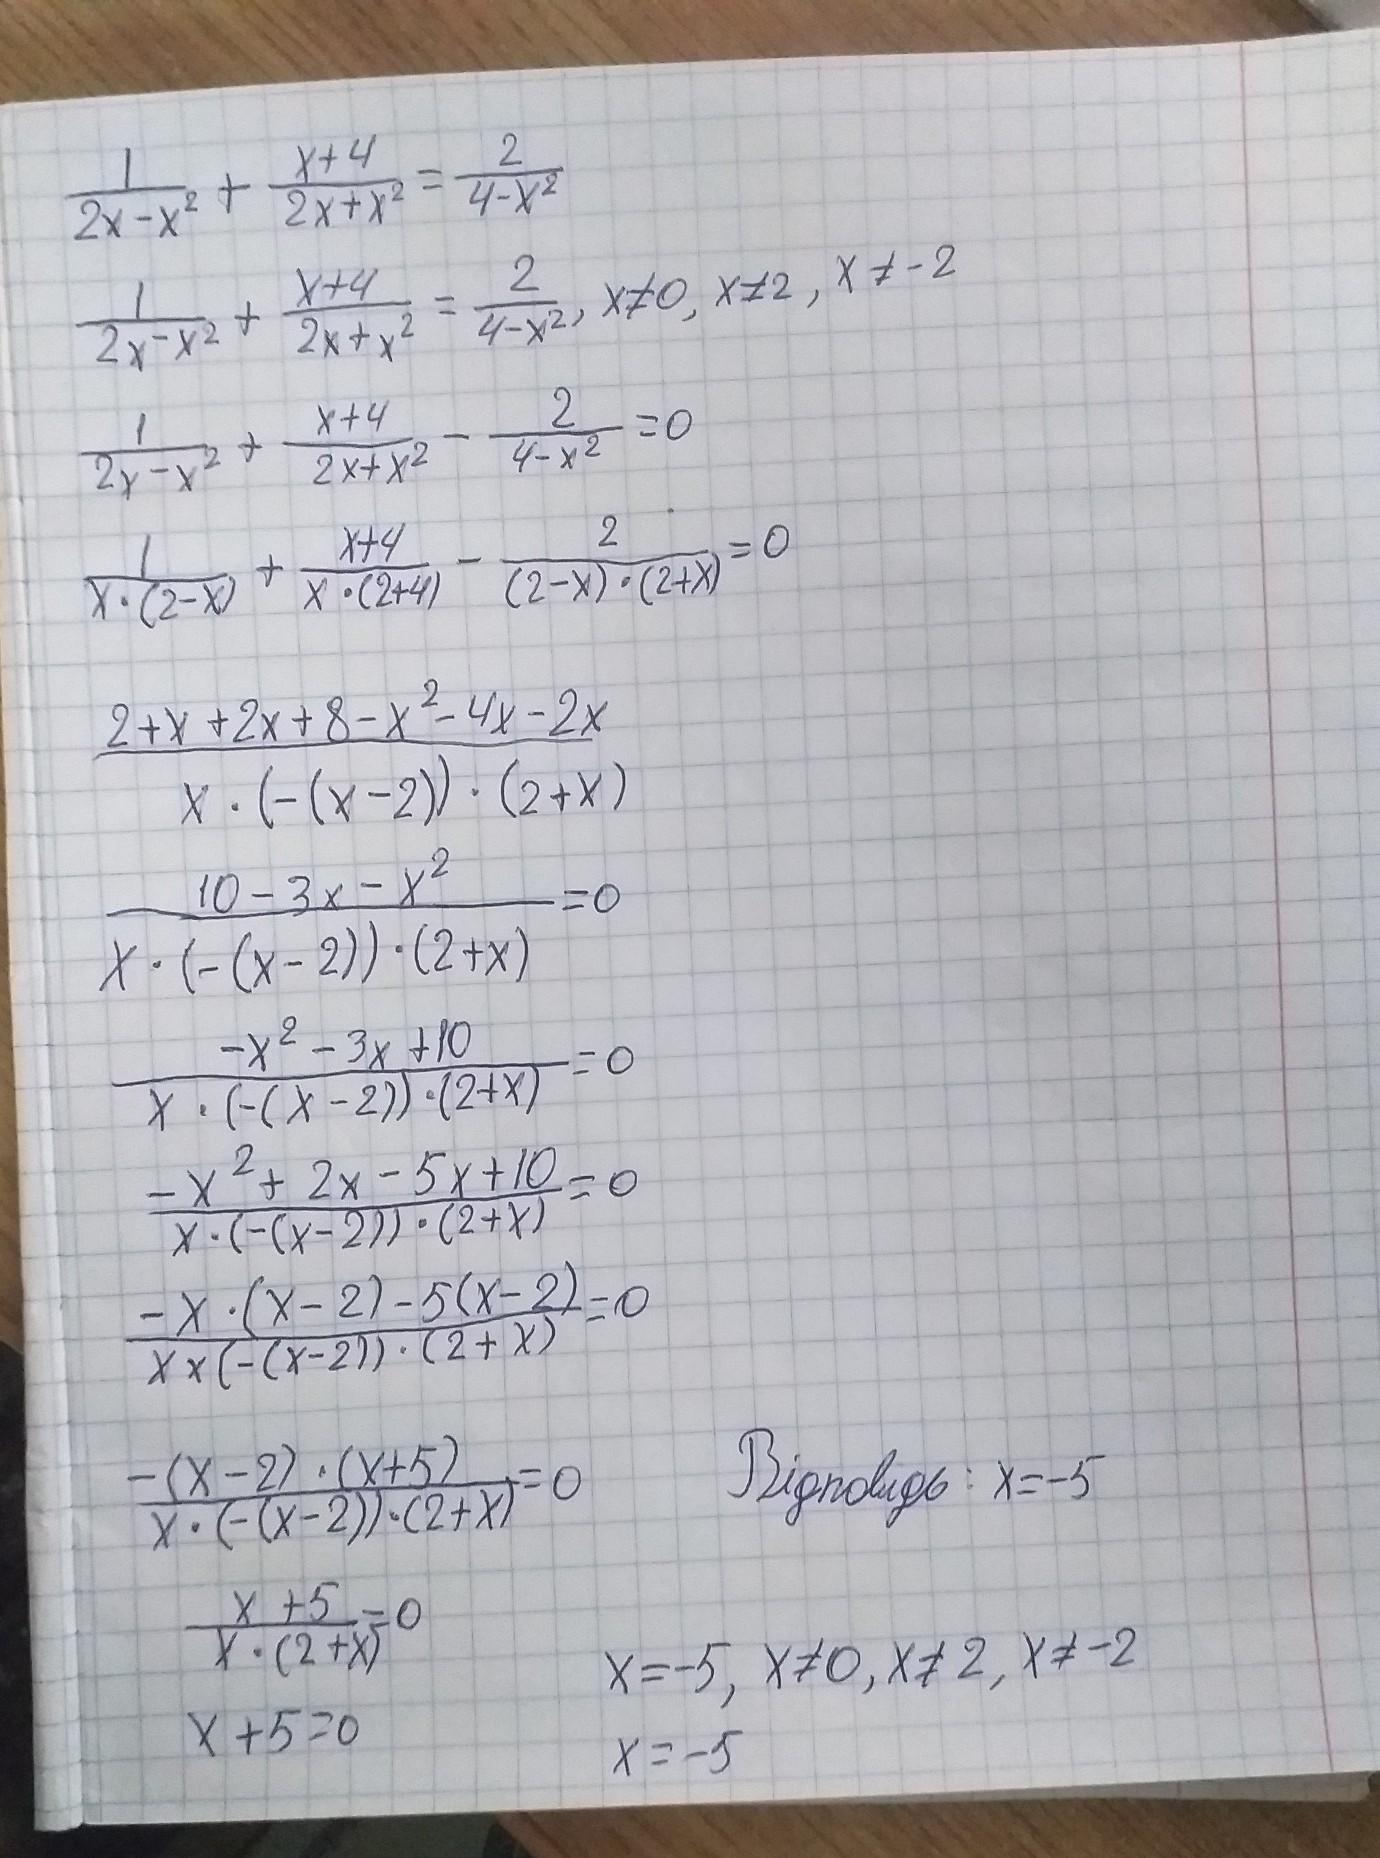 1/(2x-x²) + (x+4)/(2x+x²) = 2/(4-x²)
1/(2x-x²) + (x+4)/(2x+x²) = 2/(4-x²), x≠0, x≠2, x≠-2
1/(2x-x²) + (x+4)/(2x+x²) - 2/(4-x²) = 0
1/(x·(2-x)) + (x+4)/(x·(2+4)) - 2/((2-x)·(2+x)) = 0
(2+x+2x+8-x²-4x-2x)/(x·(-(x-2))·(2+x))
(10-3x-x²)/(x·(-(x-2))·(2+x)) = 0
(-x²-3x+10)/(x·(-(x-2))·(2+x)) = 0
(-x²+2x-5x+10)/(x·(-(x-2))·(2+x)) = 0
(-x·(x-2)-5(x-2))/(x×(-(x-2))·(2+x)) = 0
(-(x-2)·(x+5))/(x·(-(x-2))·(2+x)) = 0
(x+5)/(x·(2+x)) = 0
x+5=0
Відповидь: x=-5
x=-5, x≠0, x≠2, x≠-2
x=-5